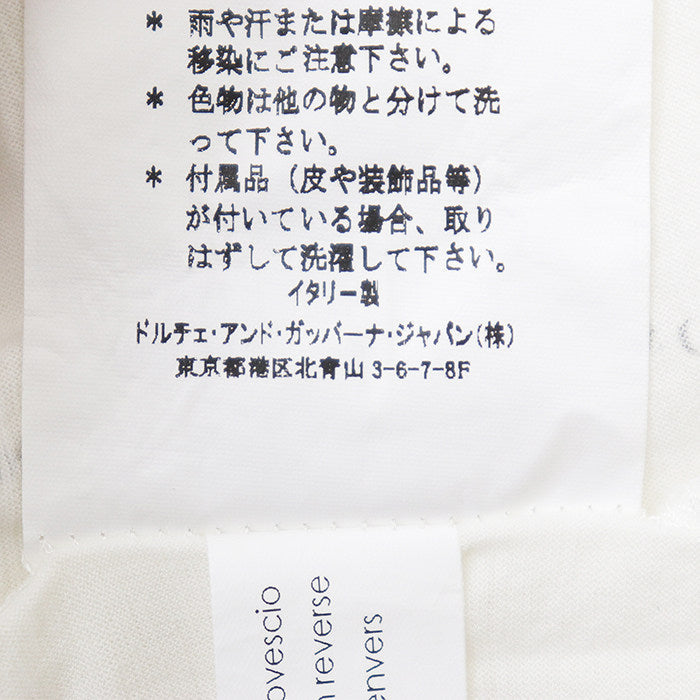 * 雨や汗または摩擦による
移染にご注意下さい。
* 色物は他の物と分けて洗
って下さい。
* 付属品（皮や装飾品等）
が付いている場合、取り
はずして洗濯して下さい。
イタリー製
ドルチェ・アンド・ガッバーナ・ジャパン(株)
東京都港区北青山 3-6-7-8F
reverse